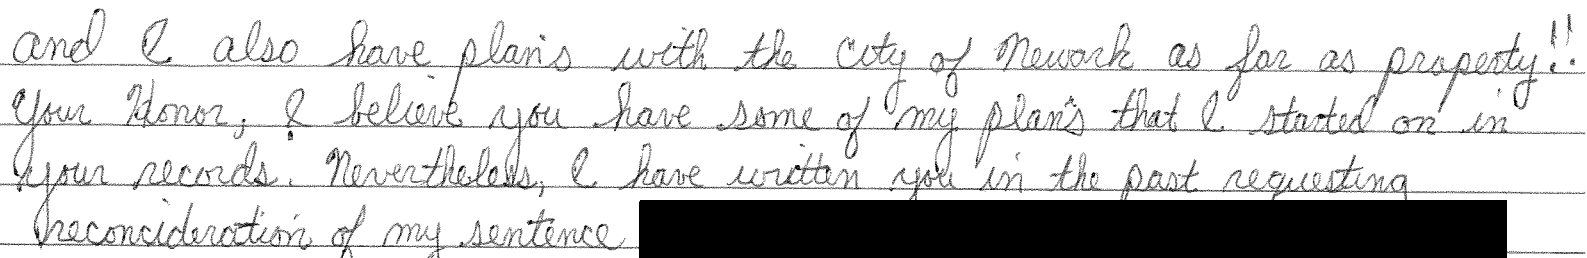 and I also have plan's with the City of Newark as far as property!!
Your Honor, I believe you have some of my plan's that I started on in
your records. Nevertheless, I have written you in the past requesting
reconcideration of my sentence